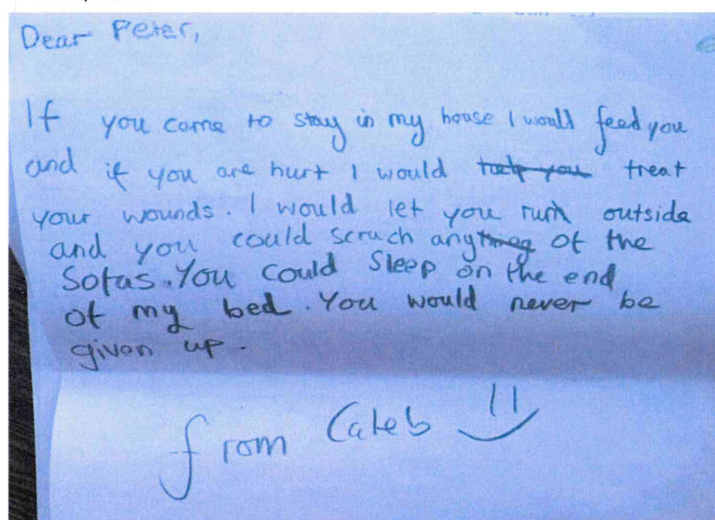 Dear Peter,
If you came to stay in my house I would feed you
and if you are hurt I would help you treat
your wounds. I would let you run outside
and you could scrach anything of the
Sofas. You could Sleep on the end
of my bed. You would never be
given up.
from Caleb